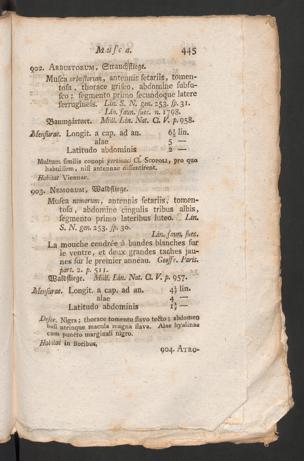 Musca. 445
902. ARBUSTORUM, Strandfliege.
Musca arbustorum, antennis setariis, tomen-
tosa, thorace griseo, abdomine subfu-
sco; segmento primo secundoque latere
ferrugineis. Lin. S. N. gen. 253. sp. 31.
Lin. faun. suec. n. 1798.
Baumgärtert. Müll. Lin. Nat. Cl. V. p. 958.
Mensurae. Longit. a cap. ad an. 6½ lin.
alae 5 —
Latitudo abdominis 2 —
Multum similis conopi Cl. SCOPOLI, pro quo
habuissem, nisi antennae dissentirent.
Habitat Viennae.
903. NEMORUM, Waldfliege.
Musca nemorum, antennis setariis, tomen-
tosa, abdomine cingulis tribus albis,
segmento primo lateribus luteo. Lin.
S. N. gen. 253. sp. 30.
Lin. faun. suec.
La mouche cendrée à bandes blanches sur
le ventre, et deux grandes taches jau-
nes sur le premier anneau. Geoff. Paris.
part. 2. p. 511.
Waldfliege. Müll. Lin. Nat. Cl. V. p. 957.
Mensurae. Longit. a cap. ad an. 4½ lin.
alae 4 —
Latitudo abdominis
Descr. Nigra; thorace tomento flavo tecto; abdomen
basi utrinque macula magna flava. Alae hyalinae
cum puncto marginali nigro.
Habitat in floribus.
904. ATRO-